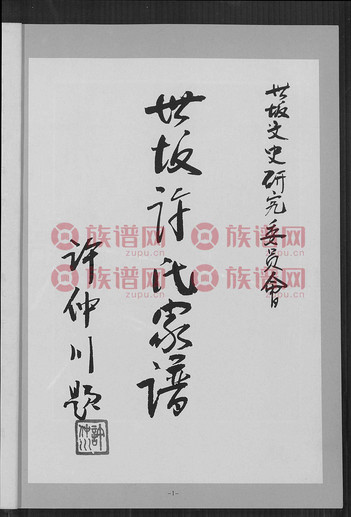 世坂文史研究委员會
世坂许氏家谱
许仲川题
許仲川
族谱网
zupu.cn
族谱网
zupu.cn
族谱网
zupu.cn
族谱网
zupu.cn
-1-